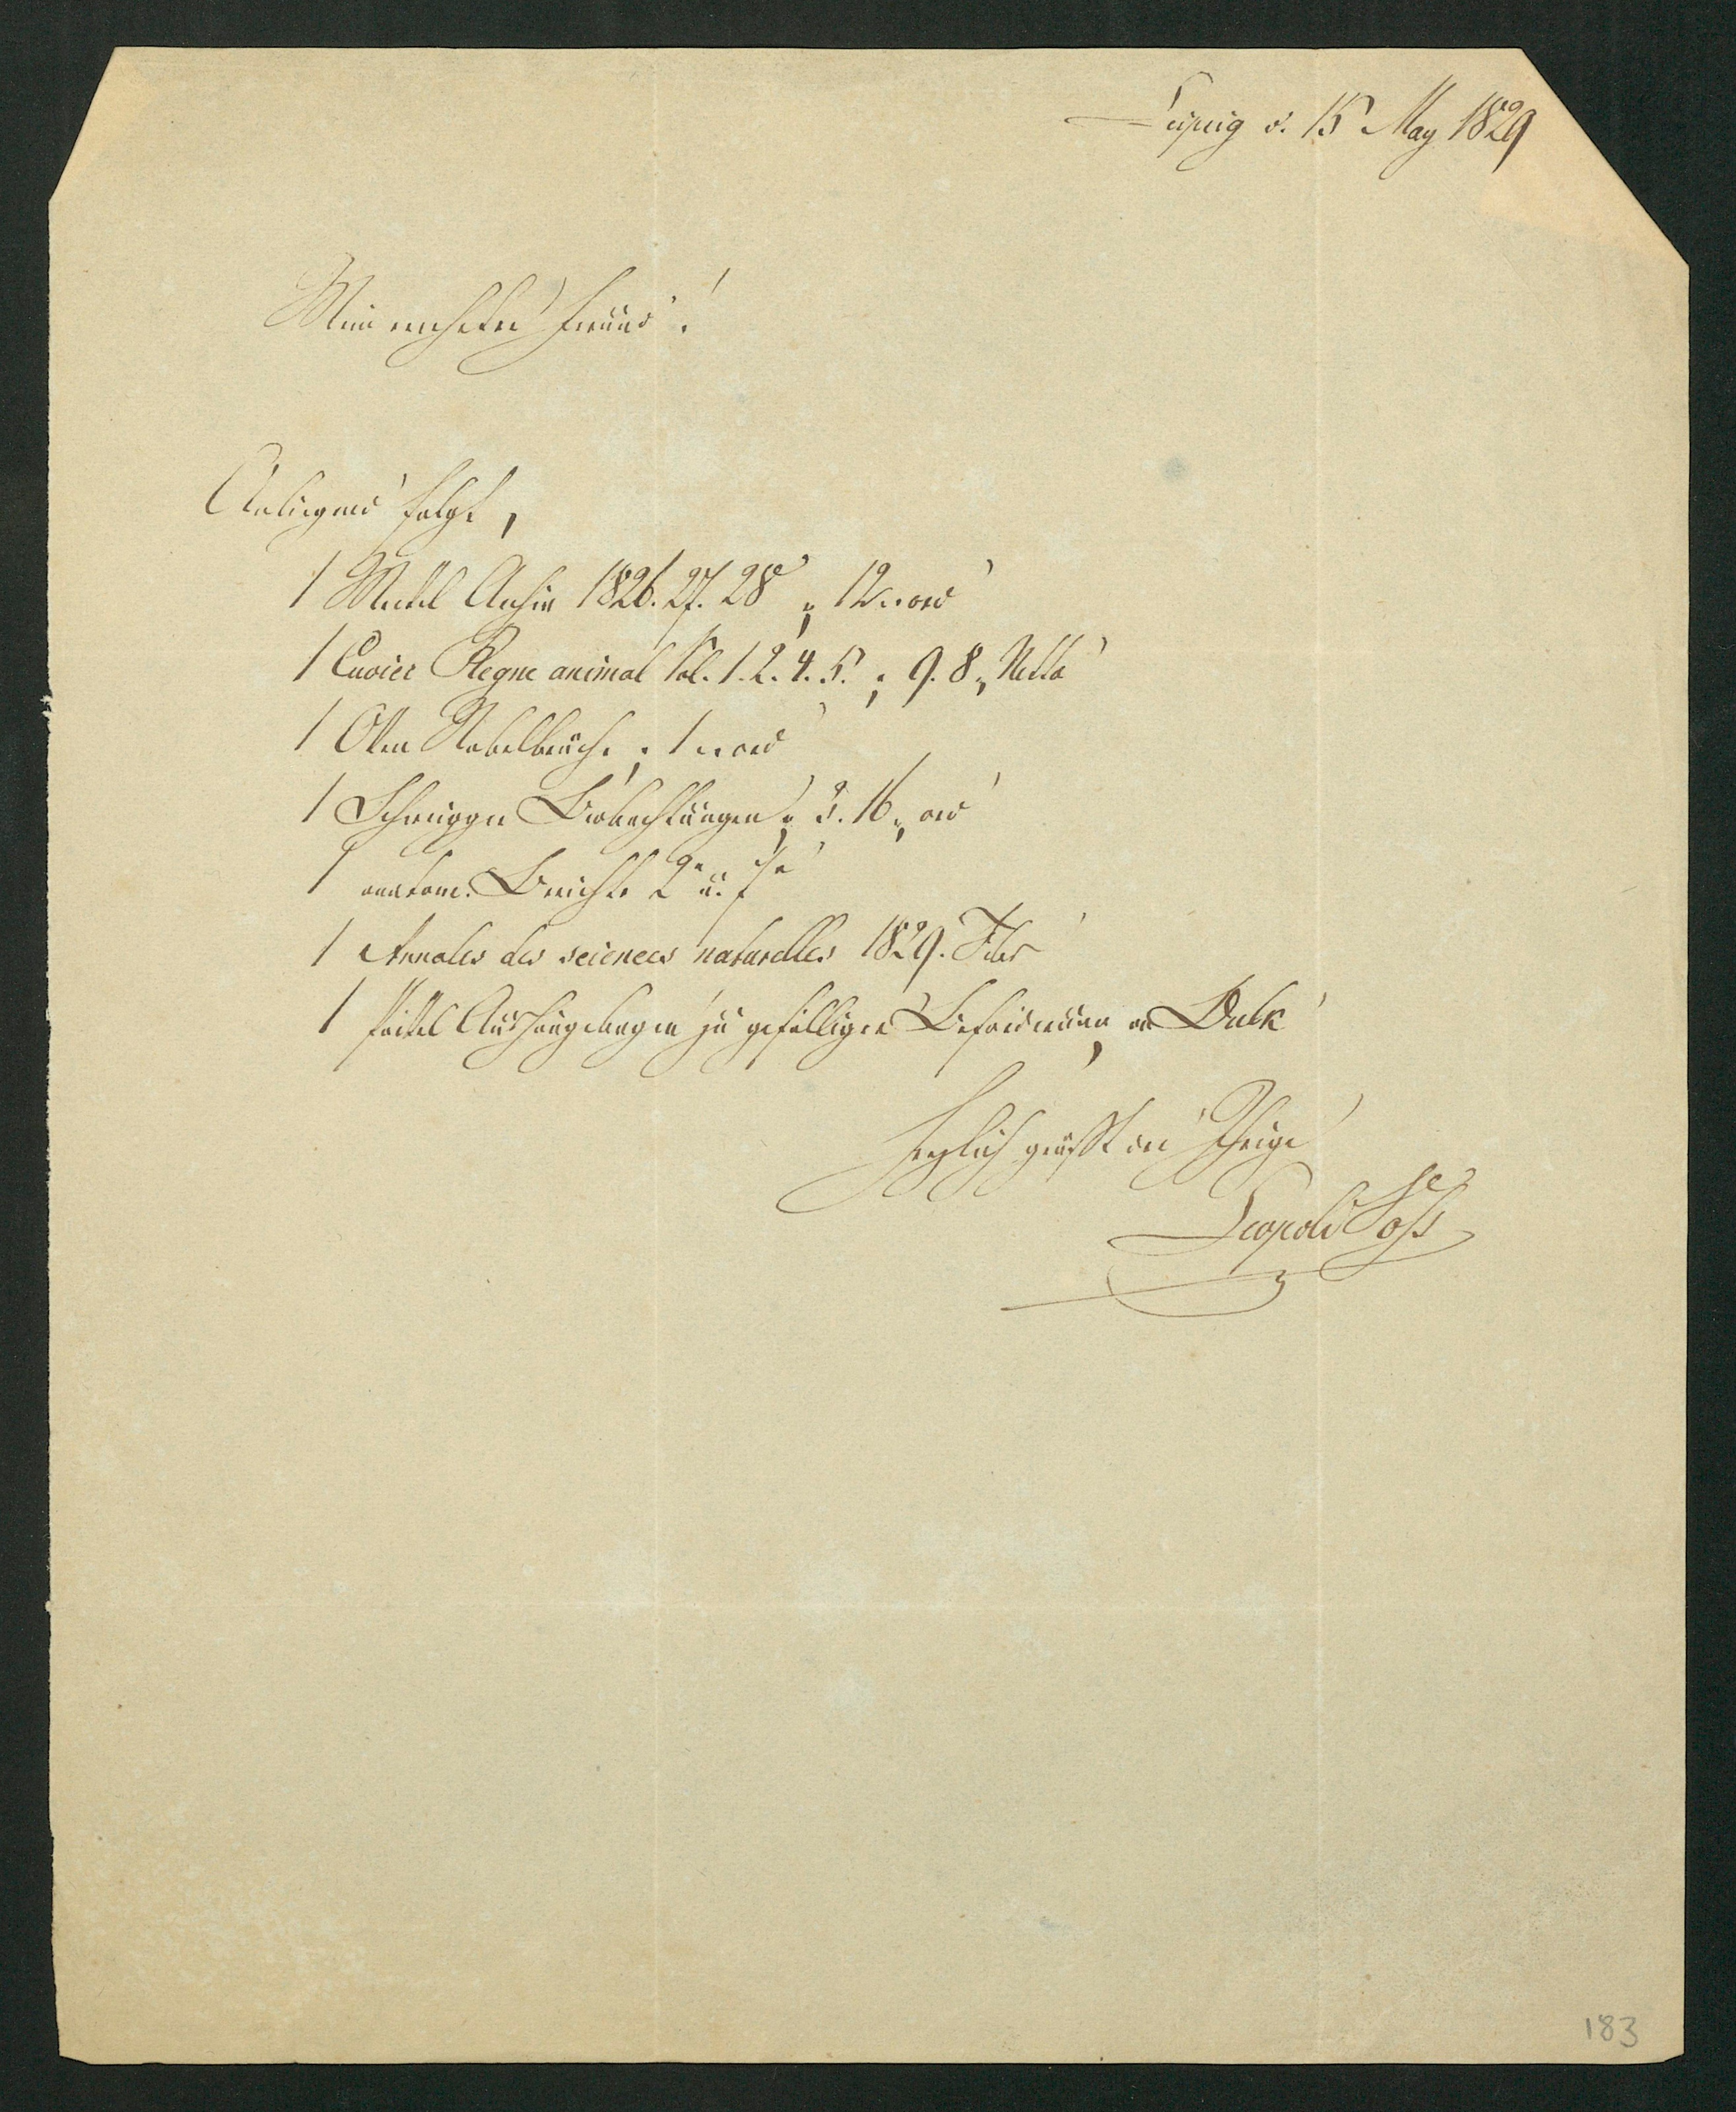 Leipzig d. 15 May 1829
Mein verehrter Freund!
Anliegend folgt,
1 Meckel Archiv 1826. 27. 28 , 12 „ ord
1 Cuvier Regne animal Vol. 1. 2. 4. 5. , 9. 8 „ Netto
1 Oken Nabelbrüche , 1 „ ord
1 Beobachtungen , 3. 16 „ ord
1 anatom. Berichte 2r u.
1 Annales des sciences naturelles 1829. Febr
1 Paket Aushängebogen zu gefälliger Beförderung an Dulk
Herzlich grüßt der Ihrige
Leopold Voß
183